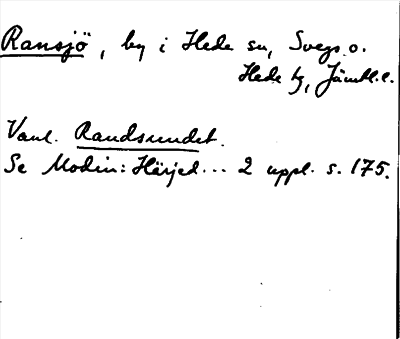 Ransjö, by i Hede sn, Svegs o.
Hede tg, Jämtl. l.
Vanl. Randsundet.
Se Modin: Härjed... 2 uppl. s. 175.